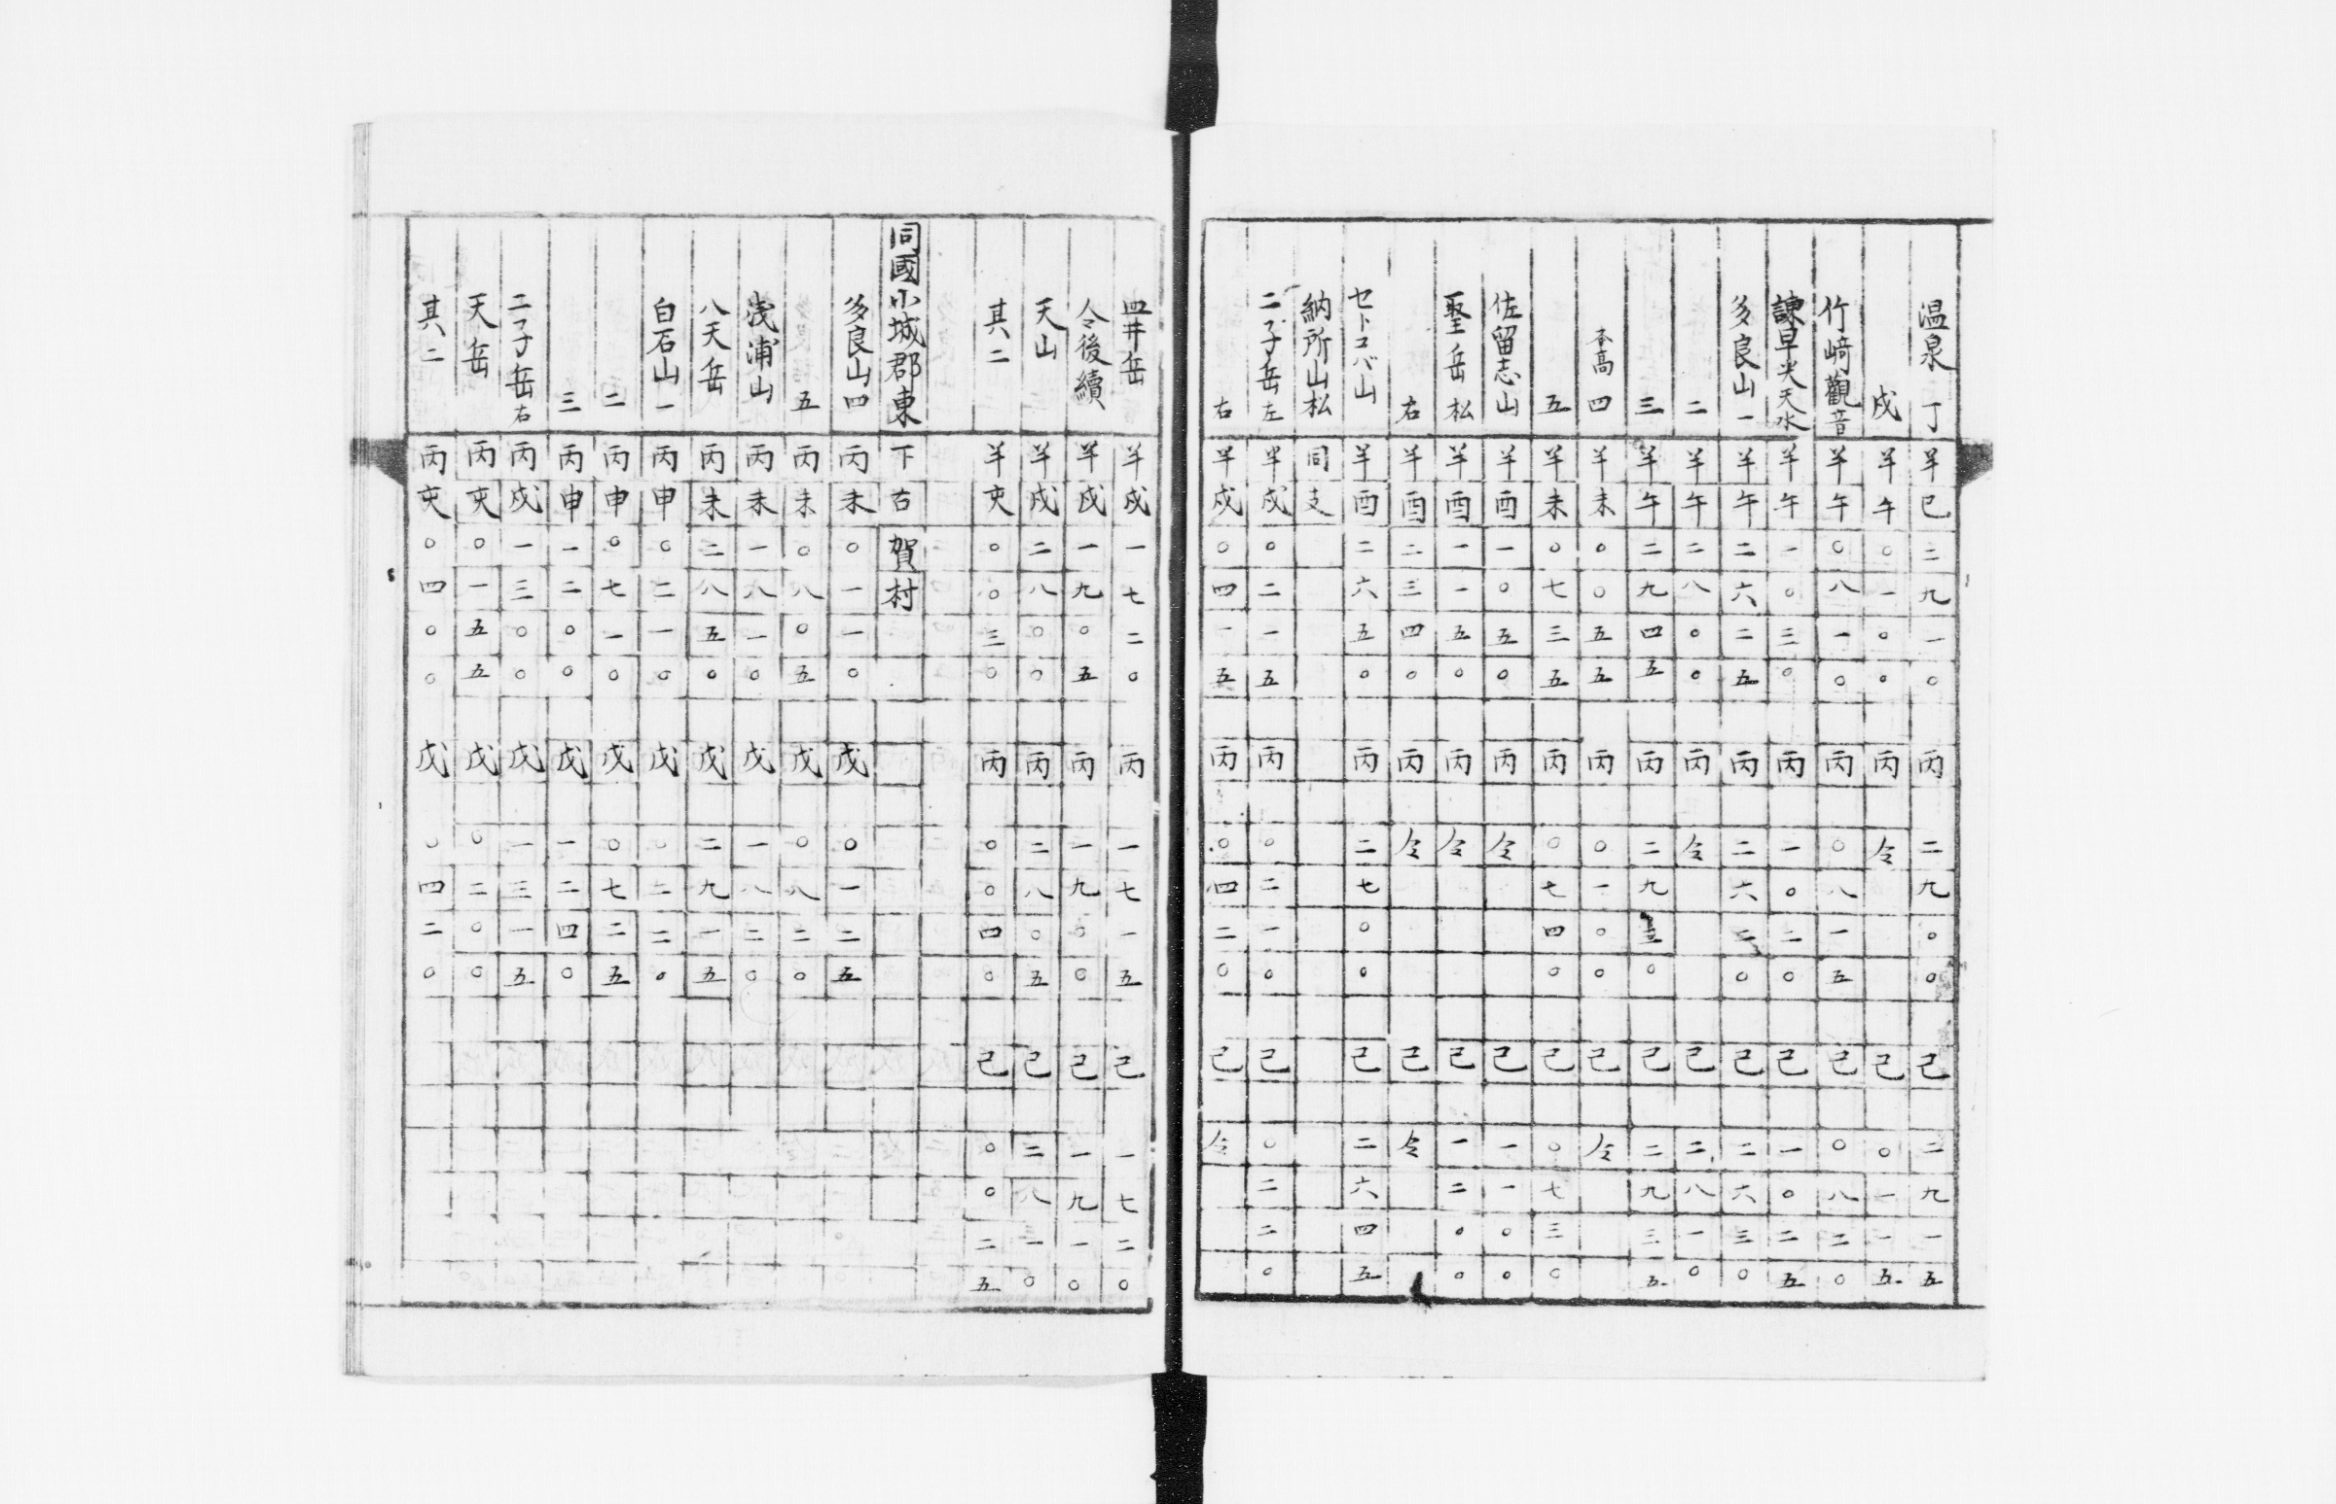 温泉 丁 羊 巳 二 九 一 〇 丙 二 九 〇 〇 己 二 九 一 五
戊 羊 午 〇 一 〇 〇 丙 仝 己 〇 一 一 五
竹﨑觀音 羊 午 〇 八 一 〇 丙 〇 八 一 五 己 〇 八 二 〇
諫早尖天水 羊 午 一 〇 三 〇 丙 一 〇 二 〇 己 一 〇 二 五
多良山 一 羊 午 二 六 二 五 丙 二 六 二 〇 己 二 六 三 〇
二 羊 午 二 八 〇 〇 丙 仝 己 二 八 一 〇
三 羊 午 二 九 四 五 丙 二 九 三 〇 己 二 九 三 五
本高 四 羊 未 〇 〇 五 五 丙 〇 一 〇 〇 己 仝
五 羊 未 〇 七 三 五 丙 〇 七 四 〇 己 〇 七 三 〇
佐留志山 羊 酉 一 〇 五 〇 丙 仝 己 一 一 〇 〇
聖岳 松 羊 酉 一 一 五 〇 丙 仝 己 一 二 〇 〇
右 羊 酉 二 三 四 〇 丙 仝 己 仝
セトコバ山 羊 酉 二 六 五 〇 丙 二 七 〇 〇 己 二 六 四 五
納所山松 同 支
二子岳左 羊 戌 〇 二 一 五 丙 〇 二 一 〇 己 〇 二 二 〇
右 羊 戌 〇 四 一 五 丙 〇 四 二 〇 己 仝
皿井岳 羊 戌 一 七 二 〇 丙 一 七 一 五 己 一 七 二 〇
仝後續 羊 戌 一 九 〇 五 丙 一 九 〇 〇 己 一 九 一 〇
天山 羊 戌 二 八 〇 〇 丙 二 八 〇 五 己 二 八 一 〇
其二 羊 亥 〇 〇 三 〇 丙 〇 〇 四 〇 己 〇 〇 二 五
同國小城郡東下古賀村
多良山四 丙 未 〇 一 一 〇 戊 〇 一 二 五
五 丙 未 〇 八 〇 五 戊 〇 八 二 〇
浅浦山 丙 未 一 八 一 〇 戊 一 八 二 〇
八天岳 丙 未 二 八 五 〇 戊 二 九 一 五
白石山一 丙 申 〇 二 一 〇 戊 〇 二 二 〇
二 丙 申 〇 七 一 〇 戊 〇 七 二 五
三 丙 申 一 二 〇 〇 戊 一 二 四 〇
二子岳右 丙 戌 一 三 〇 〇 戊 一 三 一 五
天岳 丙 亥 〇 一 五 五 戊 〇 二 〇 〇
其二 丙 亥 〇 四 〇 〇 戊 〇 四 二 〇